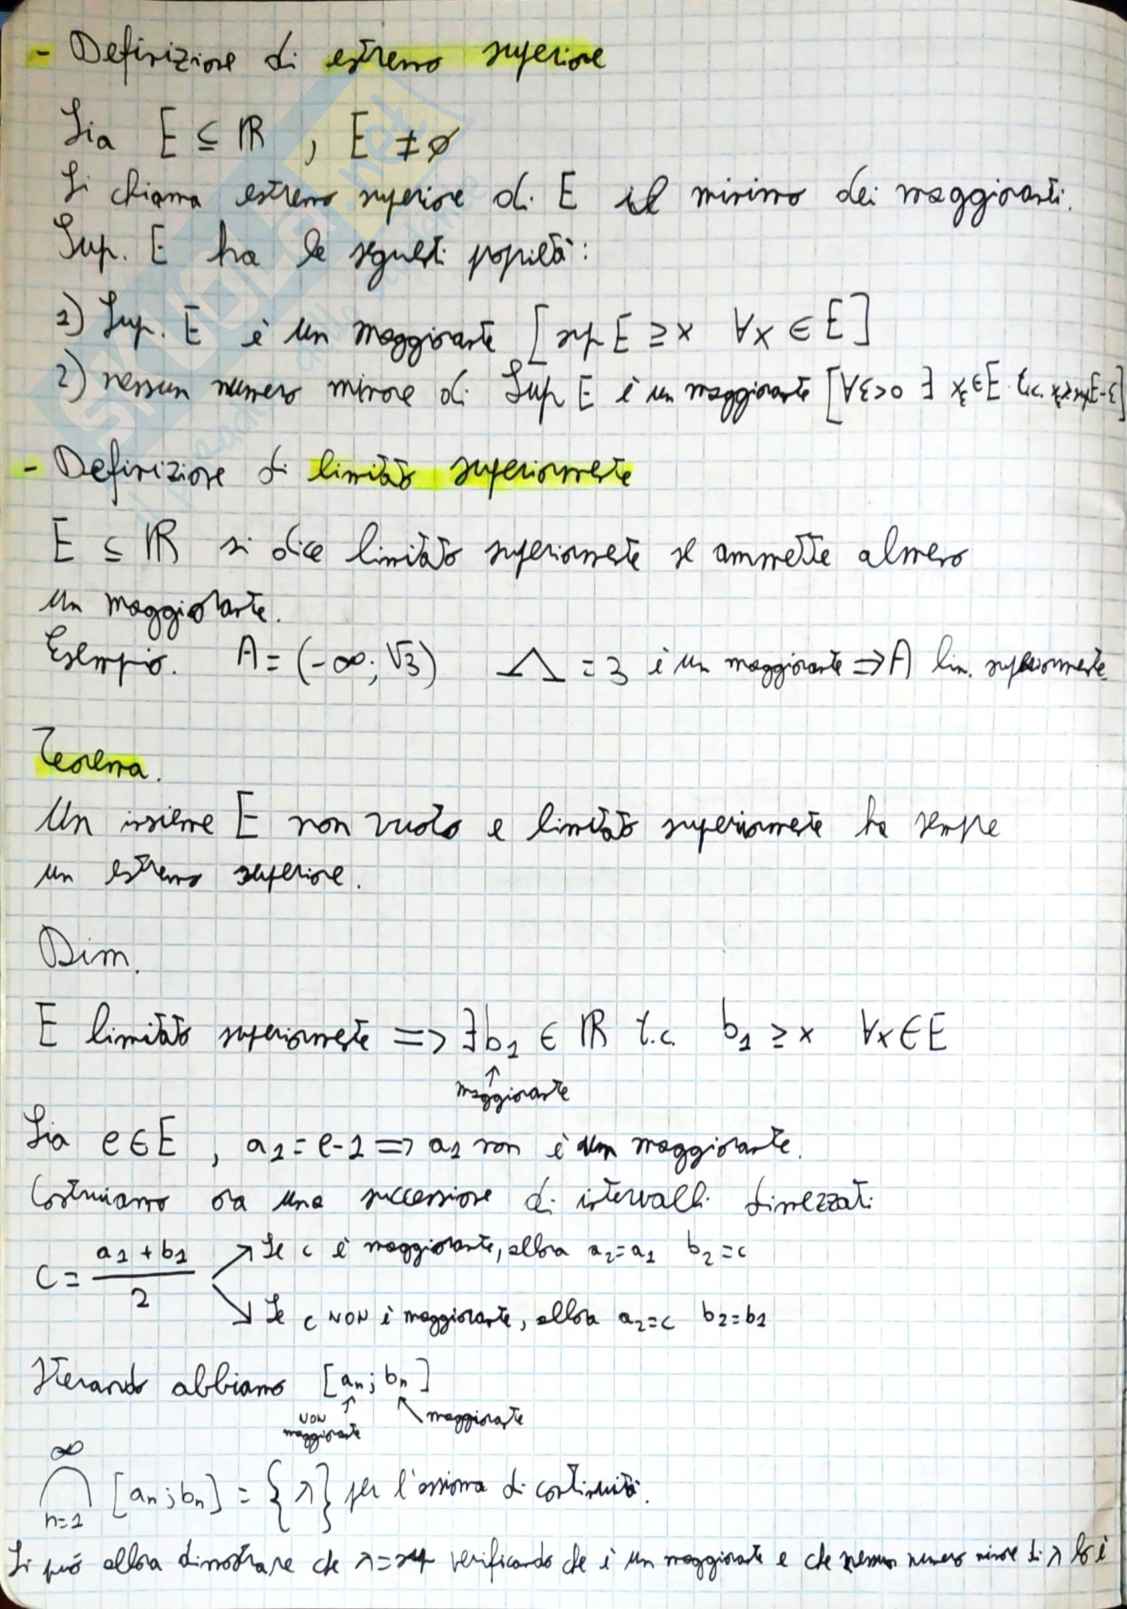 - Definizione di estremo superiore
Sia E ⊆ ℝ , E ≠ ∅
Si chiama estremo superiore di E il minimo dei maggioranti.
Sup. E ha le seguenti propietà:
1) Sup. E è un maggiorante [sup E ≥ x ∀x ∈ E]
2) nessun numero minore di Sup E è un maggiorante [∀ε>0 ∃ x̄∈E t.c. x̄ > sup E-ε]
- Definizione di limitato superiormente
E ⊆ ℝ si dice limitato superiormente se ammette almeno
un maggiorante.
Esempio. A = (-∞; √3) Λ = 3 è un maggiorante ⇒ A lim. superiormente
Teorema.
Un insieme E non vuoto e limitato superiormente ha sempre
un estremo superiore.
Dim.
E limitato superiormente => ∃b₁ ∈ ℝ t.c. b₁ ≥ x ∀x ∈ E
↑
maggiorante
Sia e ∈ E , a₁ = e-1 => a₁ non è un maggiorante.
Costruiamo ora una successione di intervalli dimezzati
c = (a₁ + b₁)/2 ↗ Se c è maggiorante, allora a₂=a₁ b₂=c
↘ Se c NON è maggiorante, allora a₂=c b₂=b₁
Iterando abbiamo [aₙ; bₙ]
NON maggiorante maggiorante
∞
⋂ [aₙ; bₙ] = {λ} per l'assioma di continuità.
n=1
Si può allora dimostrare che λ = sup verificando che è un maggiorante e che nessun numero minore di λ lo è